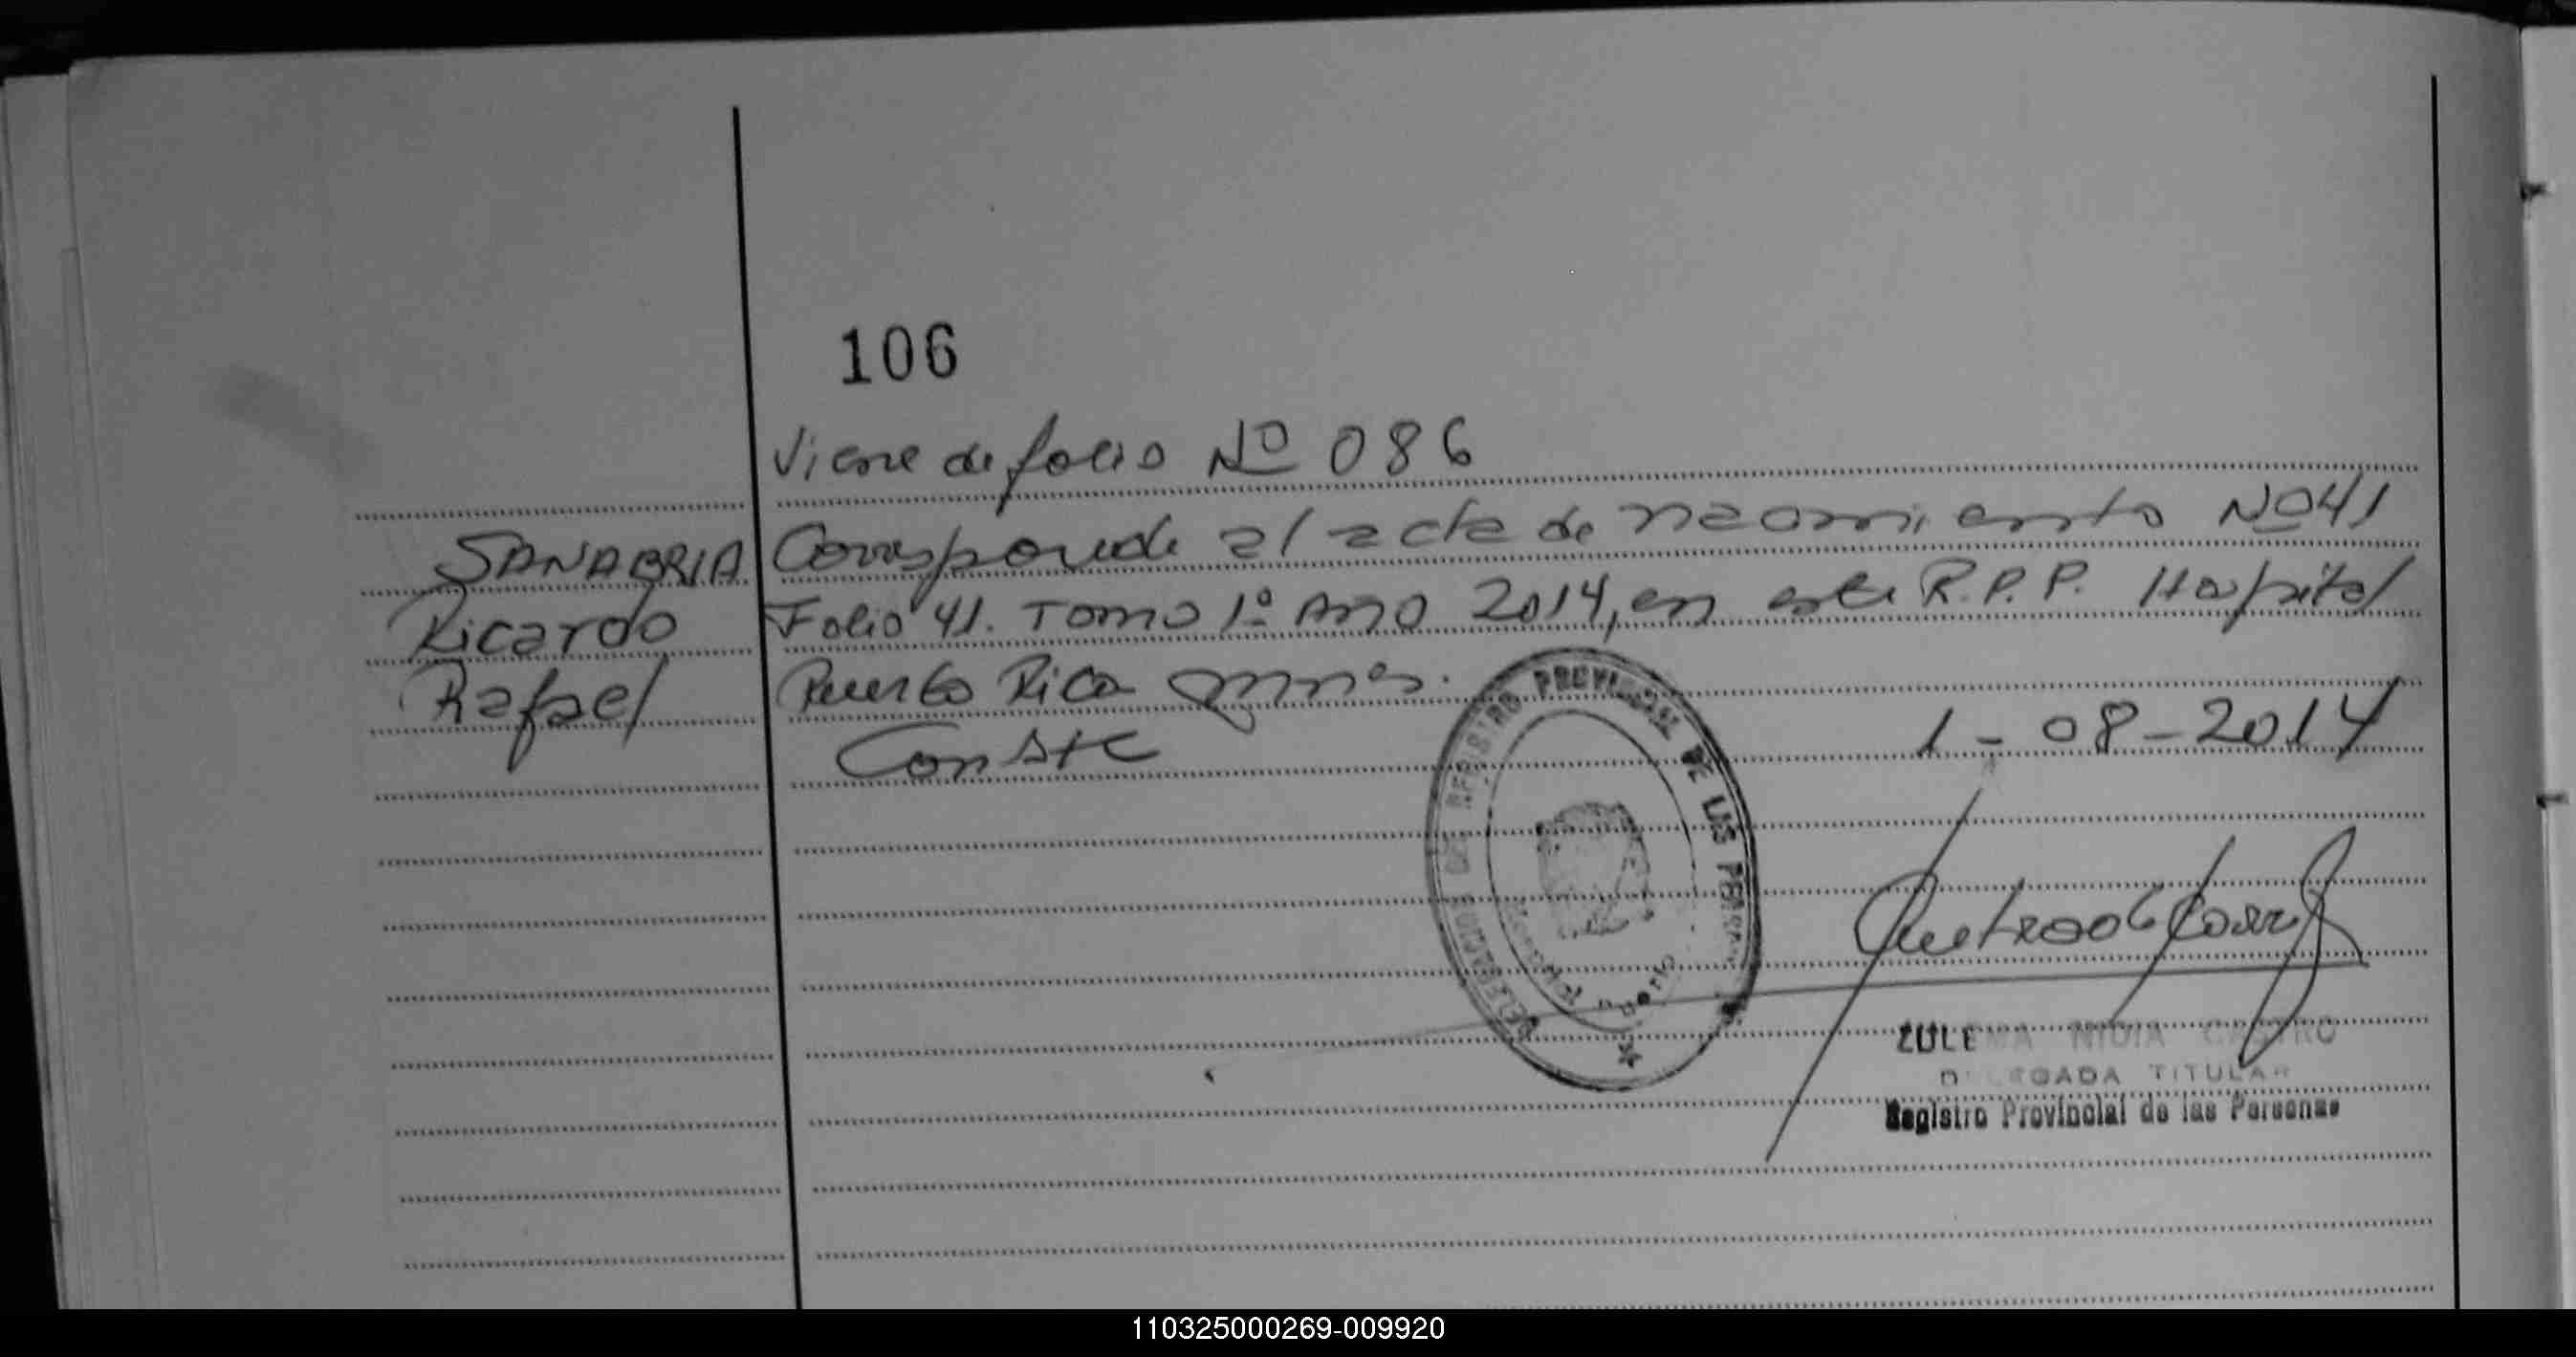 106
Viene de folio Nº 086
SANABRIA Corresponde al acta de nacimiento Nº 041
Ricardo Folio 41. Tomo 1º Año 2014, en este R.P.P. Hospital
Rafael Puerto Rico Mnes.
Conste 1-08-2014
DELEGACIO DEL REGISTRO PROVINCIAL DE LAS PERSONAS
Puerto
ZULEMA NIDIA CASTRO
DELEGADA TITULAR
Registro Provincial de las Personas
110325000269-009920